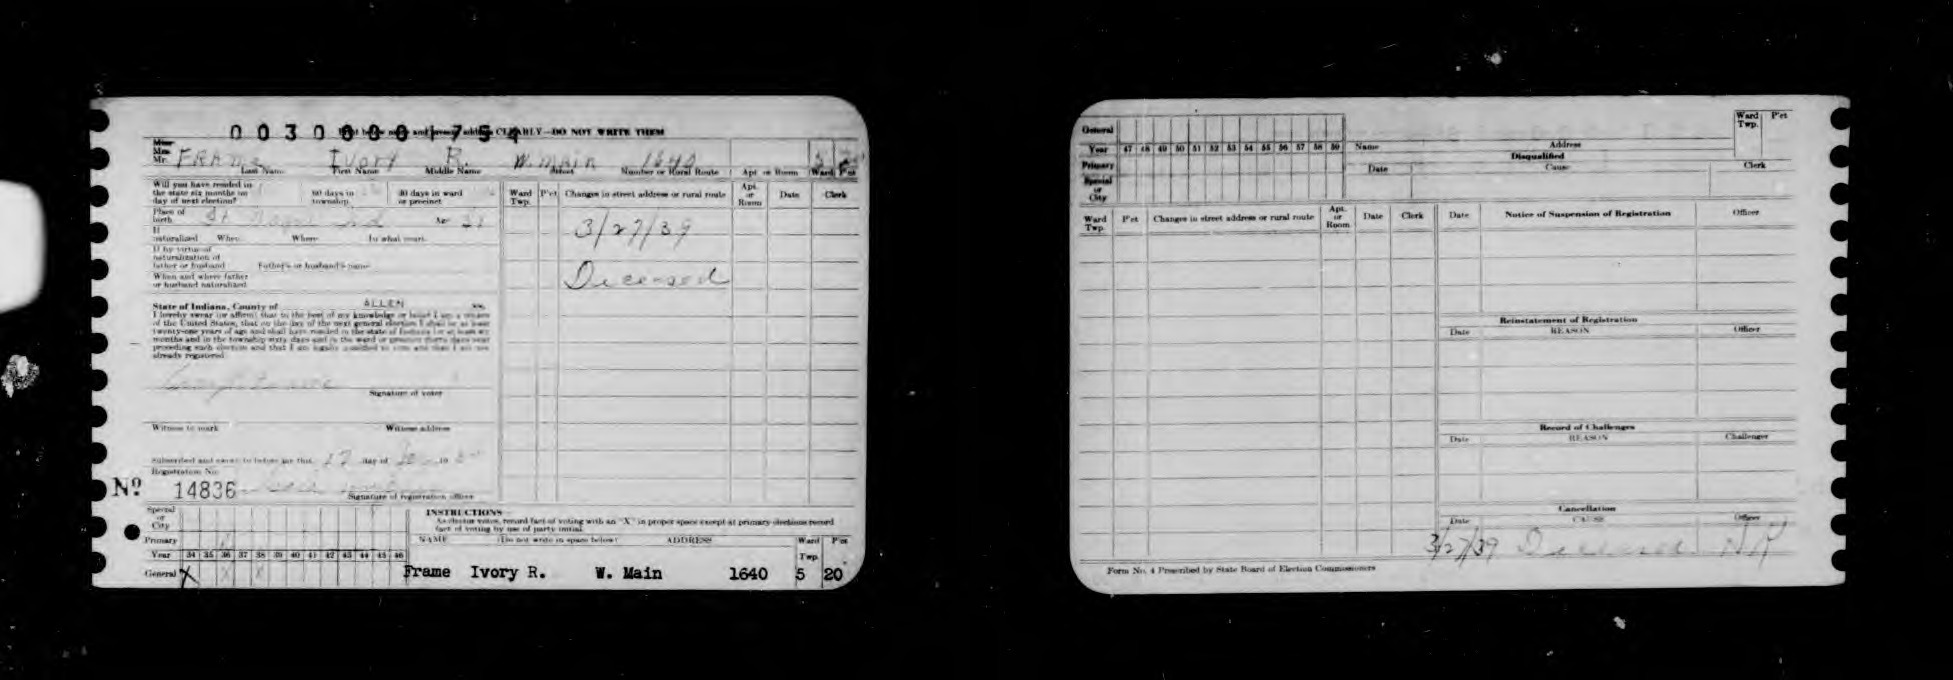 00300001754
Print below name and present address CLEARLY—DO NOT WRITE THEM
Miss
Mrs.
Mr. FRAME Ivory R. W. Main 1640 5
Last Name First Name Middle Name Street Number or Rural Route Apt. or Room Ward P'ct
Will you have resided in
the state six months on
day of next election?
60 days in
township
30 days in ward
or precinct
Ward
Twp.
P'ct
Changes in street address or rural route
Apt.
or
Room
Date
Clerk
Place of
birth Ind Age
If
naturalized When Where In what court
If by virtue of
naturalization of
father or husband Father's or husband's name
When and where father
or husband naturalized
3/27/39
Deceased
State of Indiana, County of ALLEN ss.
I hereby swear (or affirm) that to the best of my knowledge or belief I am a citizen
of the United States, that on the day of the next general election I shall be at least
twenty-one years of age and shall have resided in the state of Indiana for at least six
months and in the township sixty days and in the ward or precinct thirty days next
preceding such election and that I am legally qualified to vote and that I am not
already registered
Signature of voter
Witness to mark Witness address
Subscribed and sworn to before me this 17 day of 19
Registration No.
No 14836
Signature of registration officer
Special
or
City
Primary
Year 34 35 36 37 38 39 40 41 42 43 44 45 46
General X X X
INSTRUCTIONS
As elector votes, record fact of voting with an "X" in proper space except at primary elections record
fact of voting by use of party initial.
NAME (Do not write in space below) ADDRESS Ward P'ct
Twp.
Frame Ivory R. W. Main 1640 5 20
General
Year 47 48 49 50 51 52 53 54 55 56 57 58 59
Primary
Special
or
City
Name Address
Ward
Twp.
P'ct
Disqualified
Date Cause Clerk
Ward
Twp.
P'ct
Changes in street address or rural route
Apt.
or
Room
Date
Clerk
Date Notice of Suspension of Registration Officer
Reinstatement of Registration
Date REASON Officer
Record of Challenges
Date REASON Challenger
Cancellation
Date CAUSE Officer
3/27/39 Deceased
Form No. 4 Prescribed by State Board of Election Commissioners